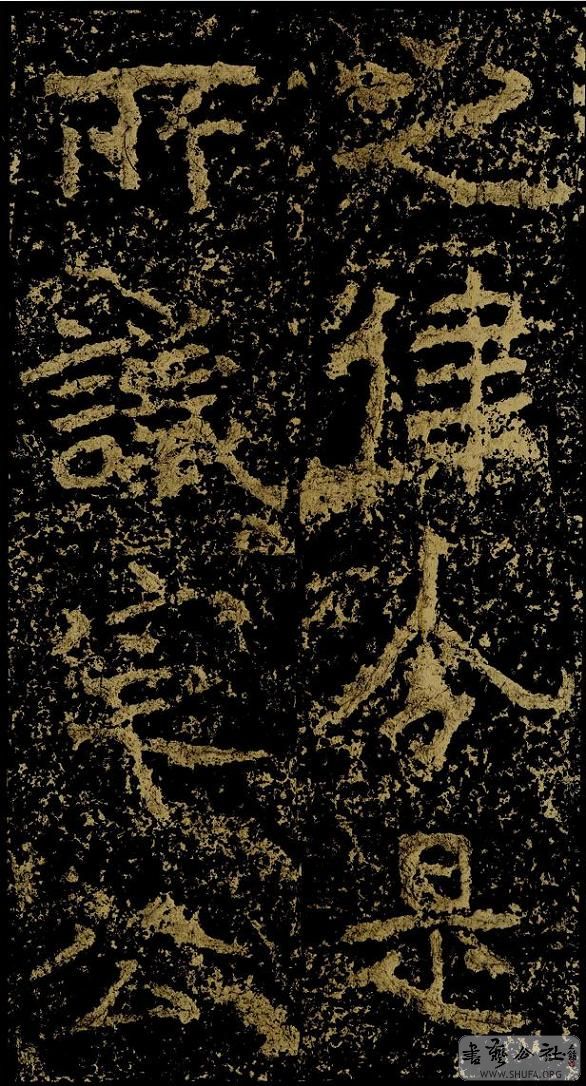 之律是
所議公
書藝公社
WWW.SHUFA.ORG